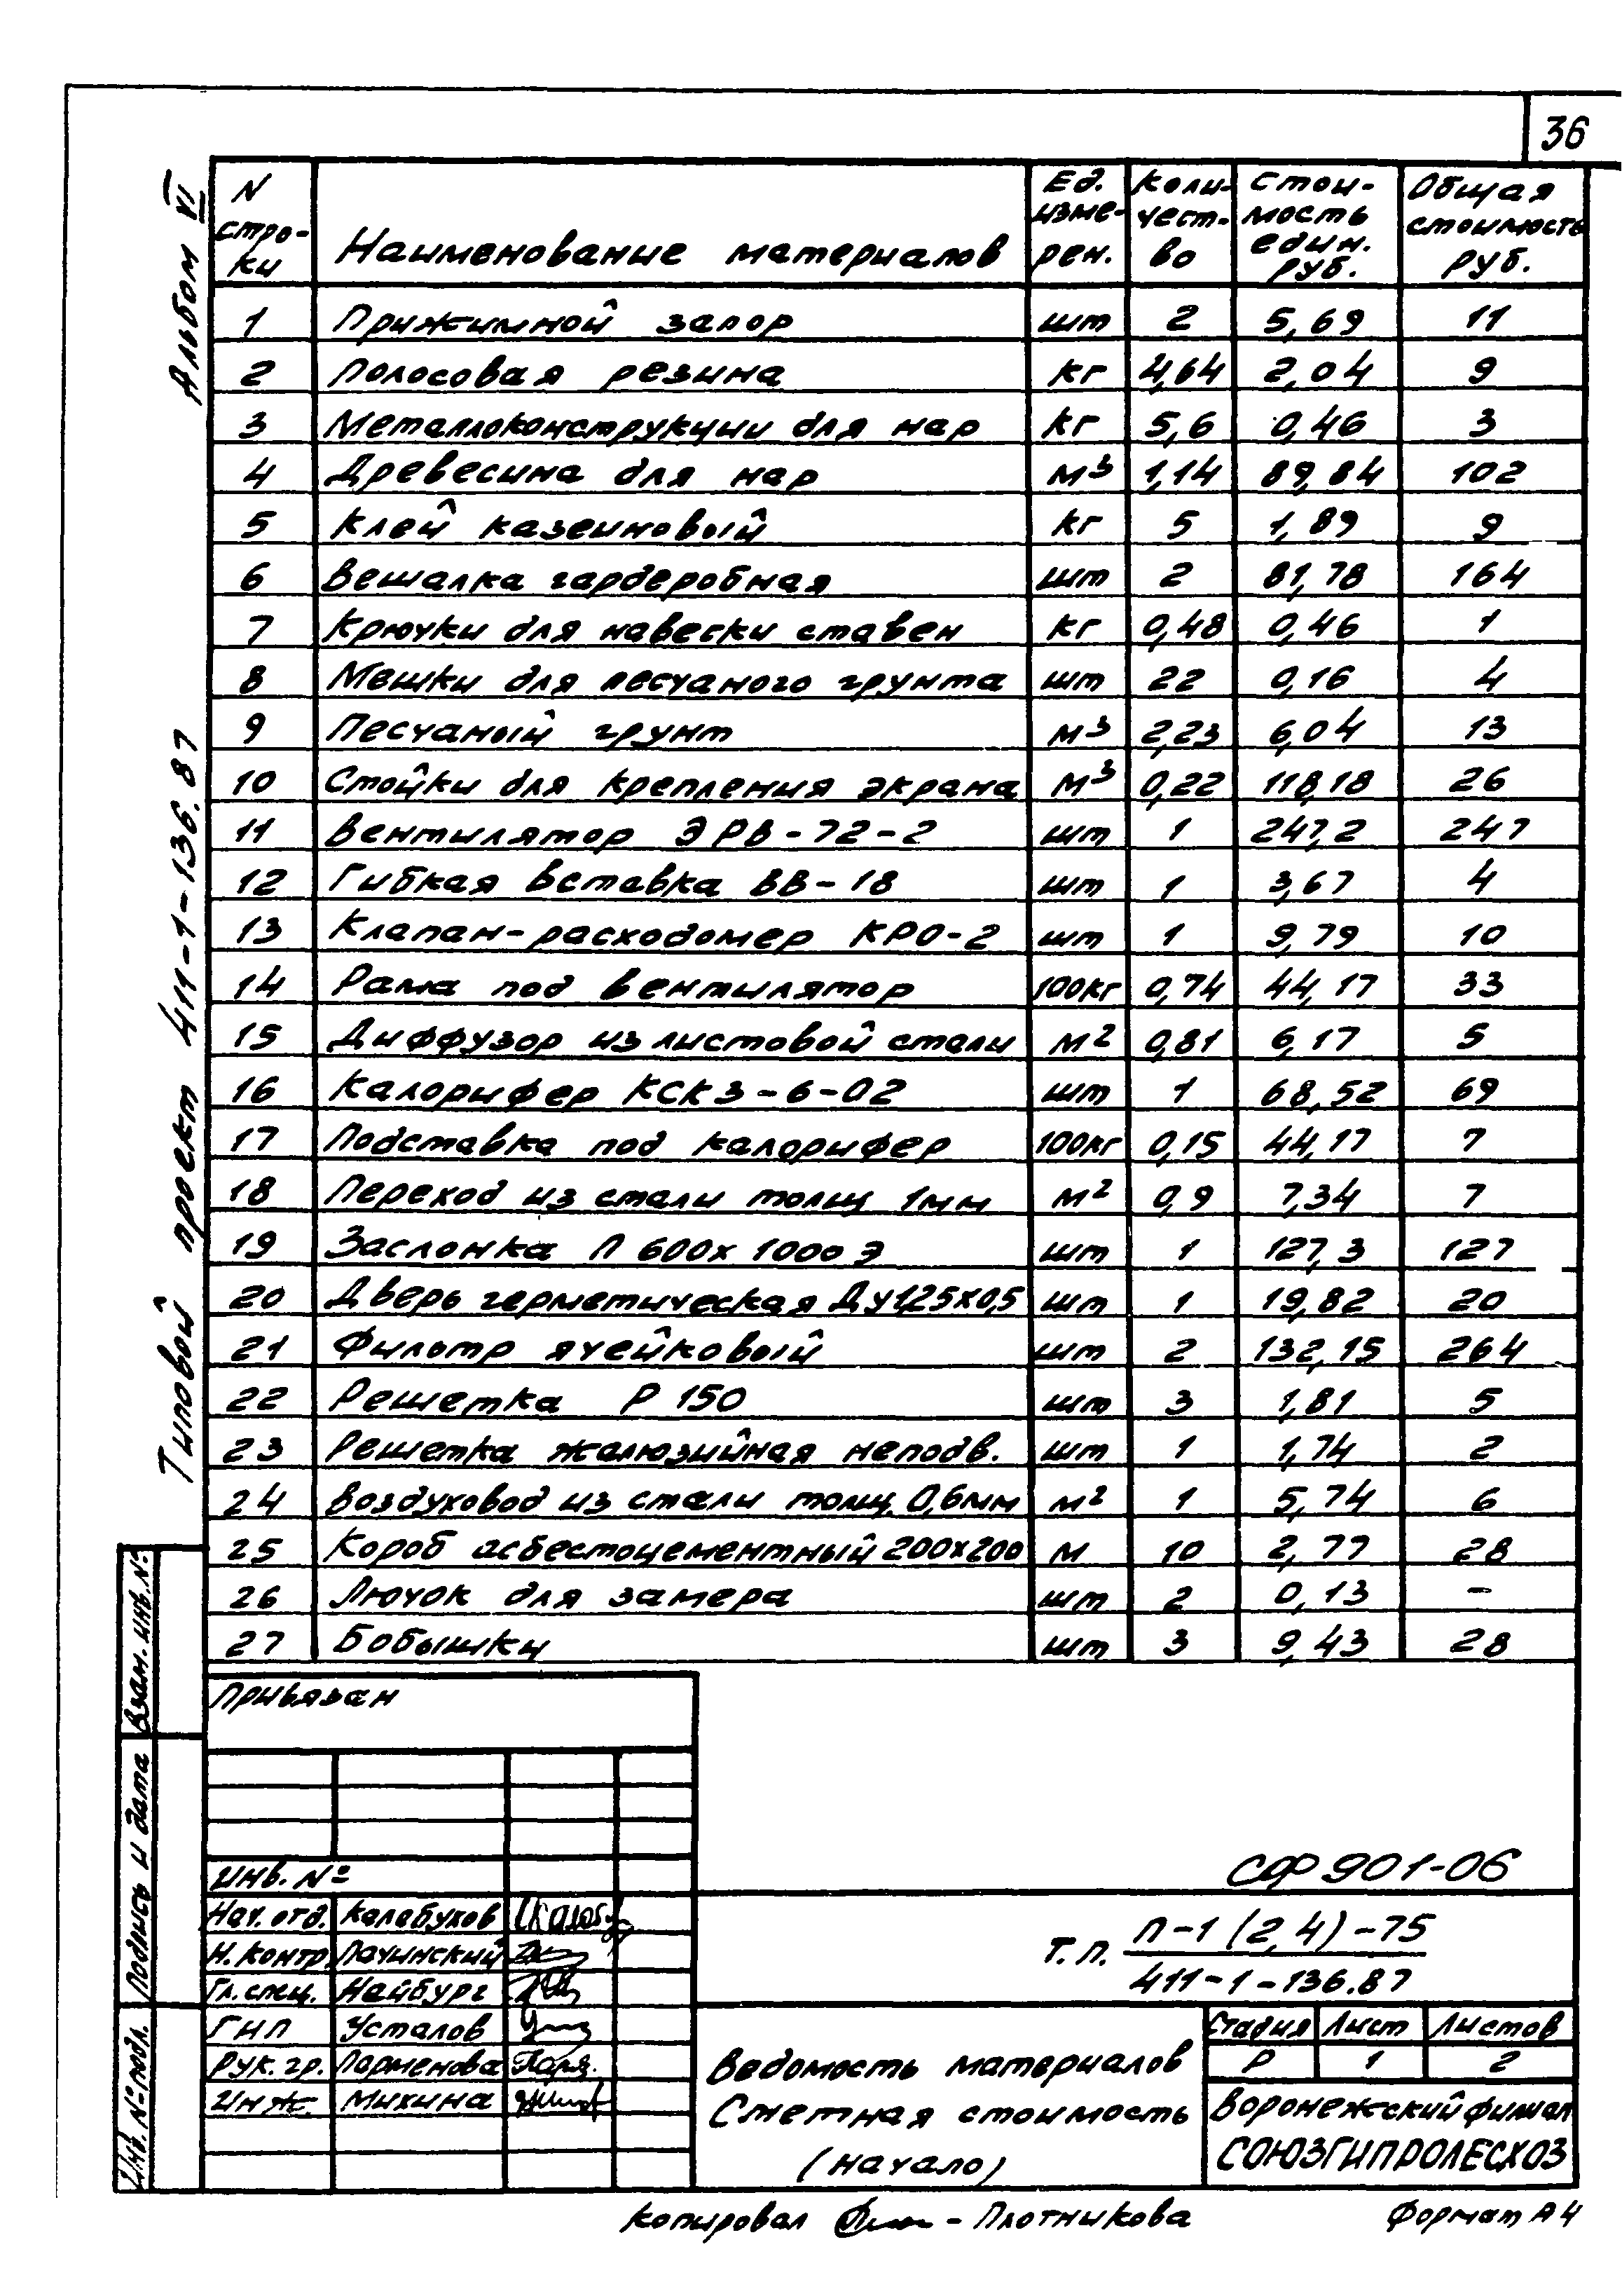 36
Альбом VI
Типовой проект 411-1-136.87
N строки Наименование материалов Ед. измерен. Количество Стоимость един. руб. Общая стоимость руб.
1 Прижимной запор шт 2 5,69 11
2 Полосовая резина кг 4,64 2,04 9
3 Металлоконструкции для нар кг 5,6 0,46 3
4 Древесина для нар м³ 1,14 89,84 102
5 Клей казеиновый кг 5 1,89 9
6 Вешалка гардеробная шт 2 81,78 164
7 Крючки для навески ставен кг 0,48 0,46 1
8 Мешки для песчаного грунта шт 22 0,16 4
9 Песчаный грунт м³ 2,23 6,04 13
10 Стойки для крепления экрана м³ 0,22 118,18 26
11 Вентилятор ЭРВ-72-2 шт 1 247,2 247
12 Гибкая вставка ВВ-18 шт 1 3,67 4
13 Клапан-расходомер КРО-2 шт 1 9,79 10
14 Рама под вентилятор 100кг 0,74 44,17 33
15 Диффузор из листовой стали м² 0,81 6,17 5
16 Калорифер КСК3-6-02 шт 1 68,52 69
17 Подставка под калорифер 100кг 0,15 44,17 7
18 Переход из стали толщ 1мм м² 0,9 7,34 7
19 Заслонка П 600х1000Э шт 1 127,3 127
20 Дверь герметическая Ду1,25х0,5 шт 1 19,82 20
21 Фильтр ячейковый шт 2 132,15 264
22 Решетка Р 150 шт 3 1,81 5
23 Решетка жалюзийная неподв. шт 1 1,74 2
24 Воздуховод из стали толщ. 0,6мм м² 1 5,74 6
25 Короб асбестоцементный 200х200 м 10 2,77 28
26 Лючок для замера шт 2 0,13 -
27 Бобышки шт 3 9,43 28
Взам. инв. №
Подпись и дата
Инв. № подл.
Привязан
Инв. №
СФ 901-06
Нач. отд. Калабухов
Н. контр. Пачинский
Гл. спец. Нейбург
ГИП Усталов
Рук. гр. Парменова
Инж. Михина
Т.П. П-1(2,4)-75
411-1-136.87
Ведомость материалов
Сметная стоимость
(начало)
Стадия Лист Листов
Р 1 2
Воронежский филиал
СОЮЗГИПРОЛЕСХОЗ
Копировал - Плотникова
Формат А4